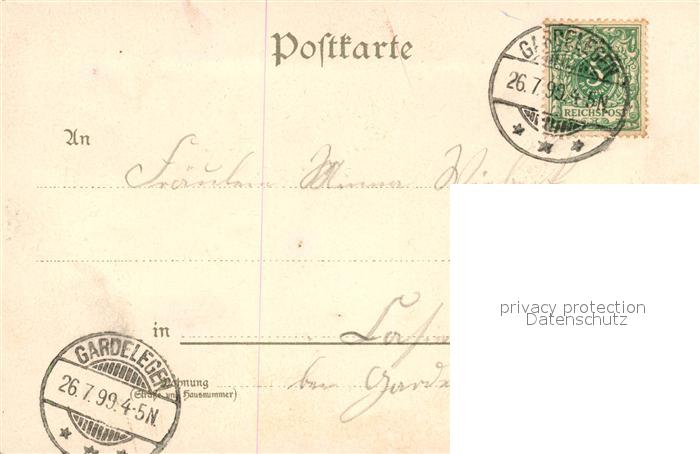 Postkarte
GARDELEGEN
26.7.99.4-5N.
5
REICHSPOST
An
Fräulein Minna
privacy protection
Datenschutz
in
GARDELEGEN
26.7.99.4-5N.
Wohnung
(Straße und Hausnummer)
bei Garde